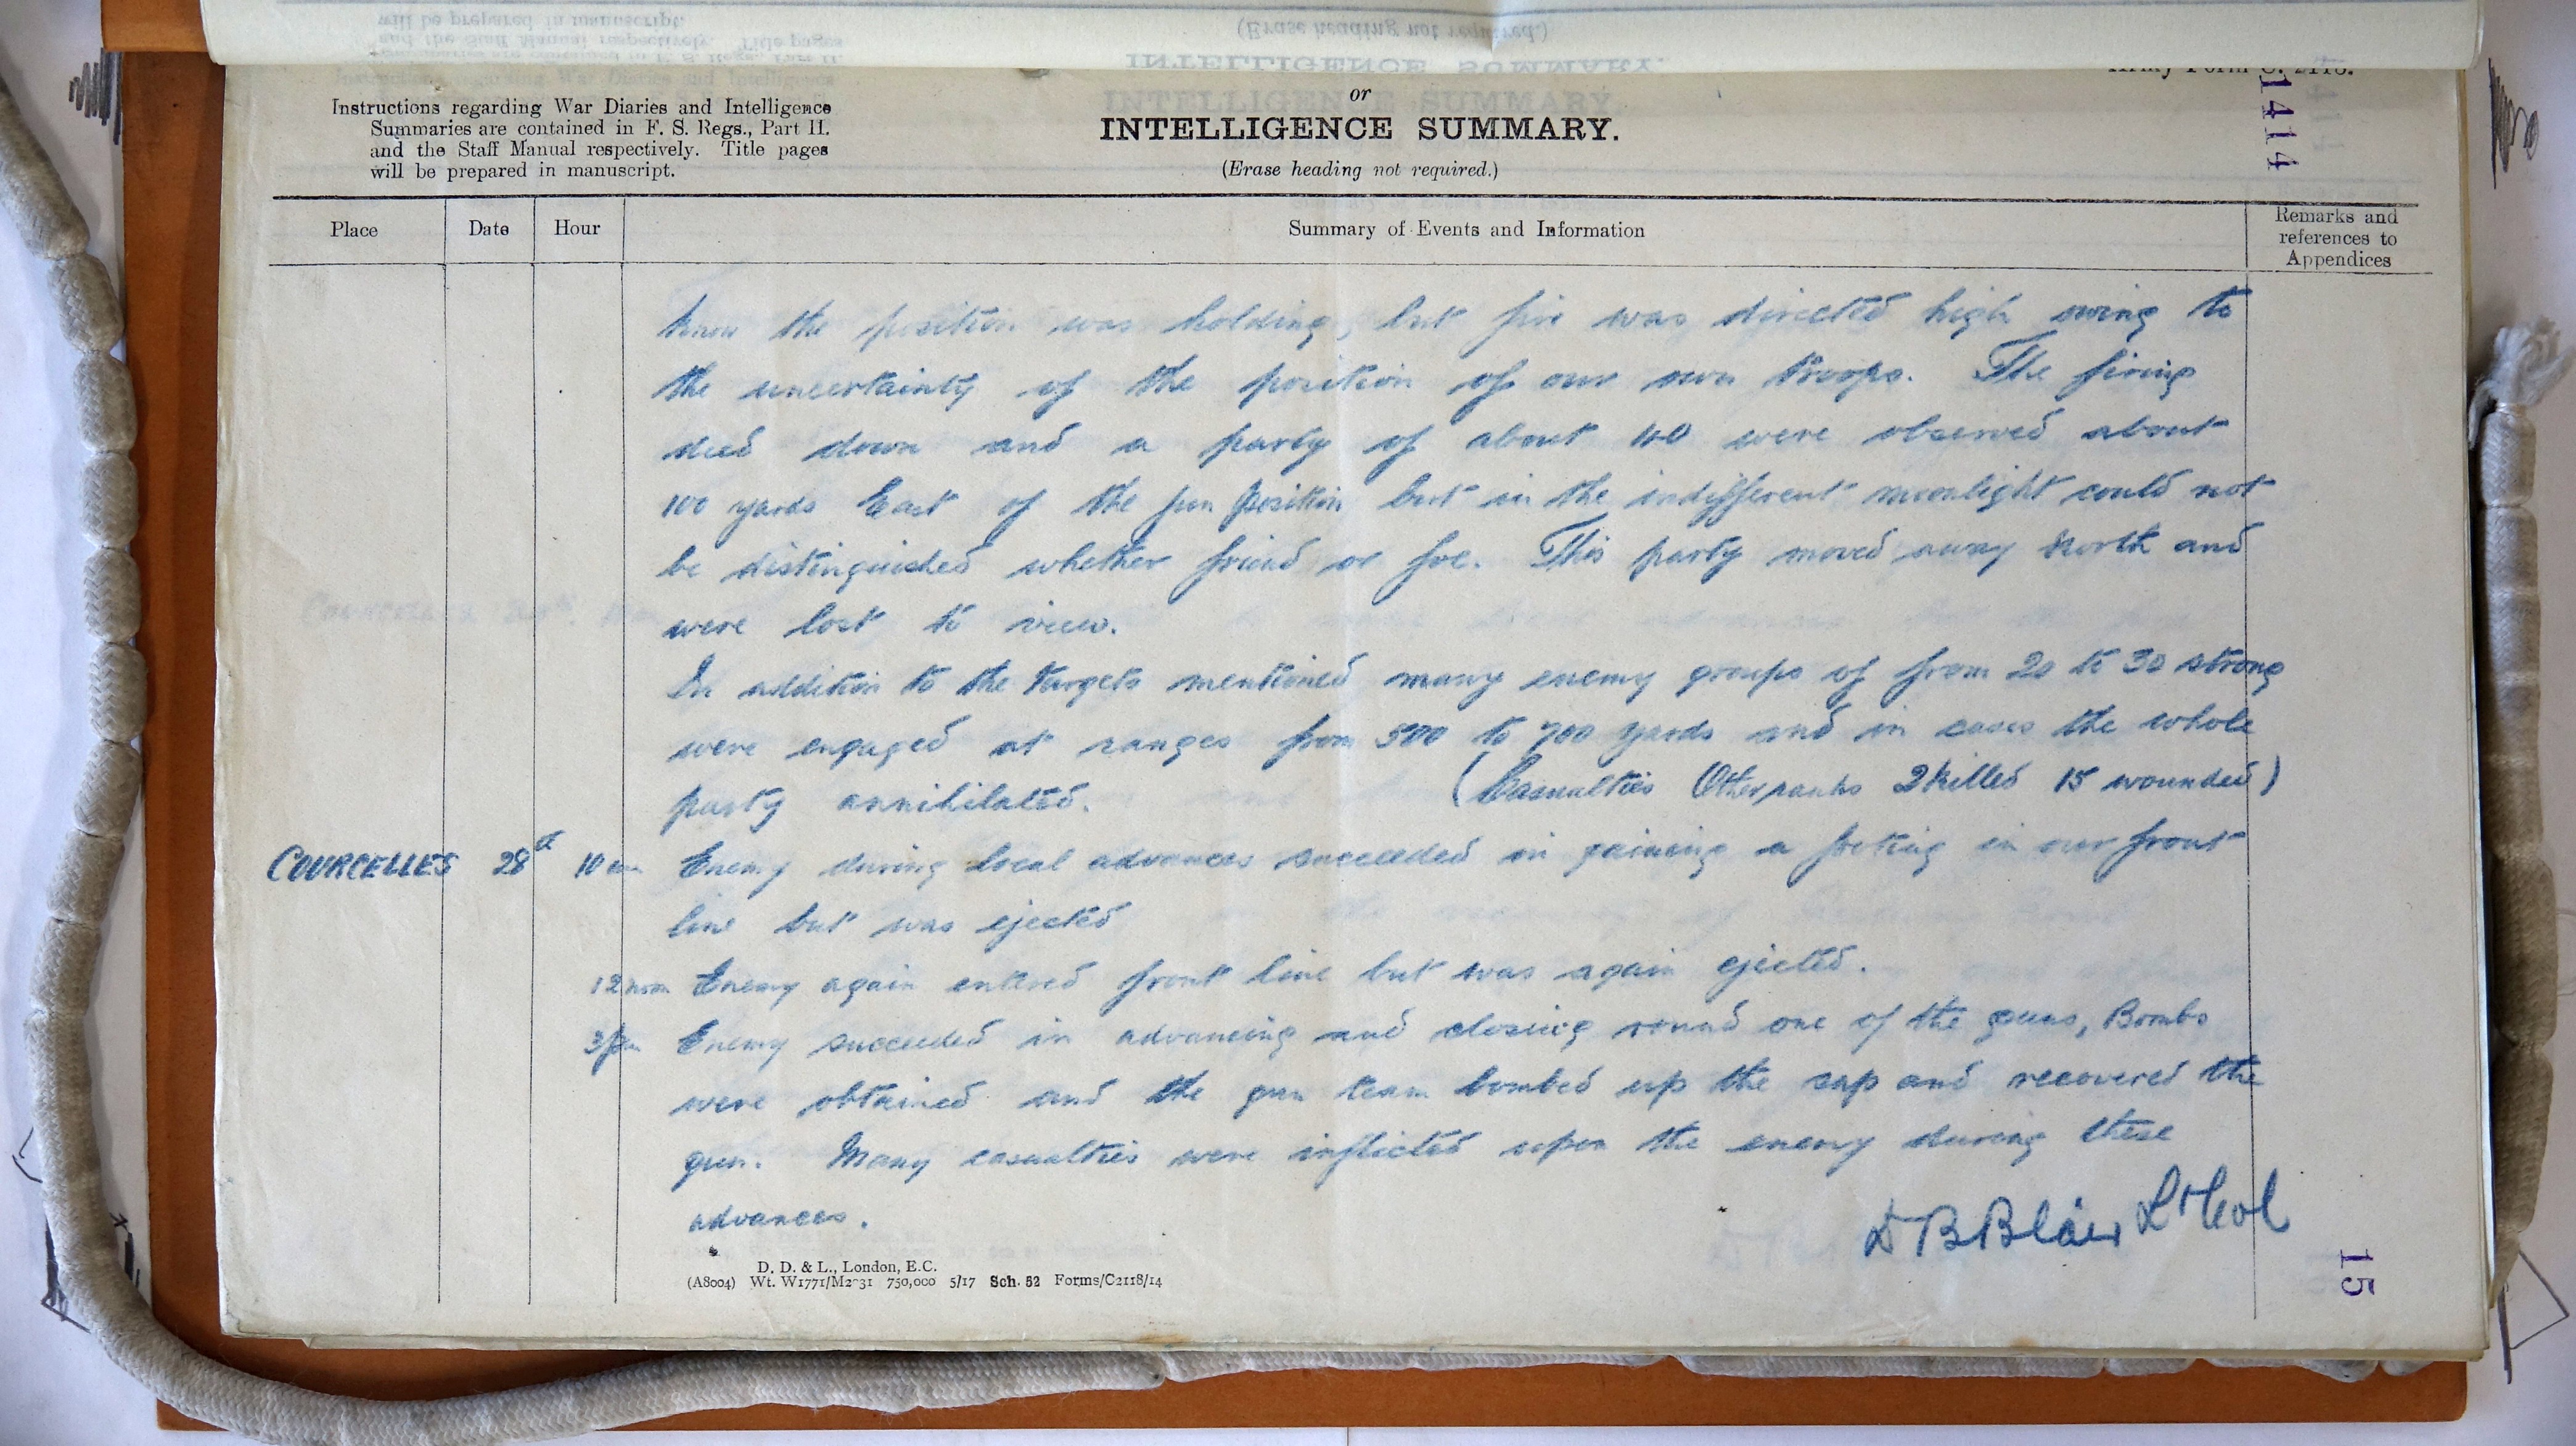 Army Form C. 2118.
1414
Instructions regarding War Diaries and Intelligence
Summaries are contained in F. S. Regs., Part II.
and the Staff Manual respectively. Title pages
will be prepared in manuscript.
or
INTELLIGENCE SUMMARY.
(Erase heading not required.)
Place Date Hour Summary of Events and Information Remarks and
references to
Appendices
know the position was holding, but fire was directed high owing to
the uncertainty of the position of our own troops. The firing
died down and a party of about 40 were observed about
100 yards East of the gun position but in the indifferent moonlight could not
be distinguished whether friend or foe. This party moved away North and
were lost to view.
In addition to the targets mentioned many enemy groups of from 20 to 30 strong
were engaged at ranges from 500 to 700 yards and in cases the whole
party annihilated. (Casualties Other ranks 2 killed 15 wounded)
COURCELLES 28th 10 am Enemy during local advances succeeded in gaining a footing in our front
line but was ejected
12 noon Enemy again entered front line but was again ejected.
3 pm Enemy succeeded in advancing and closing round one of the guns, Bombs
were obtained and the gun team bombed up the sap and recovered the
gun. Many casualties were inflicted upon the enemy during these
advances.
D B Blair Lt Col
15
D. D. & L., London, E.C.
(A8004) Wt. W1771/M2031 750,000 5/17 Sch. 52 Forms/C2118/14